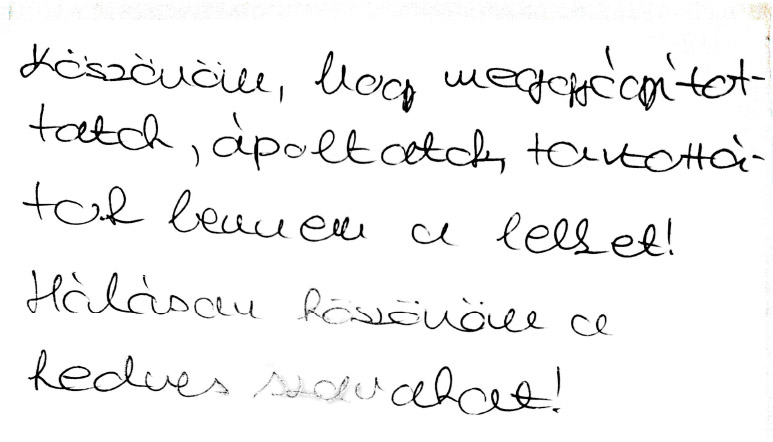 Köszönöm, hogy meggyógyítot-
tatok, ápoltatok, tartottá-
tok bennem a lelket!
Hálásan köszönöm a
kedves szavakat!